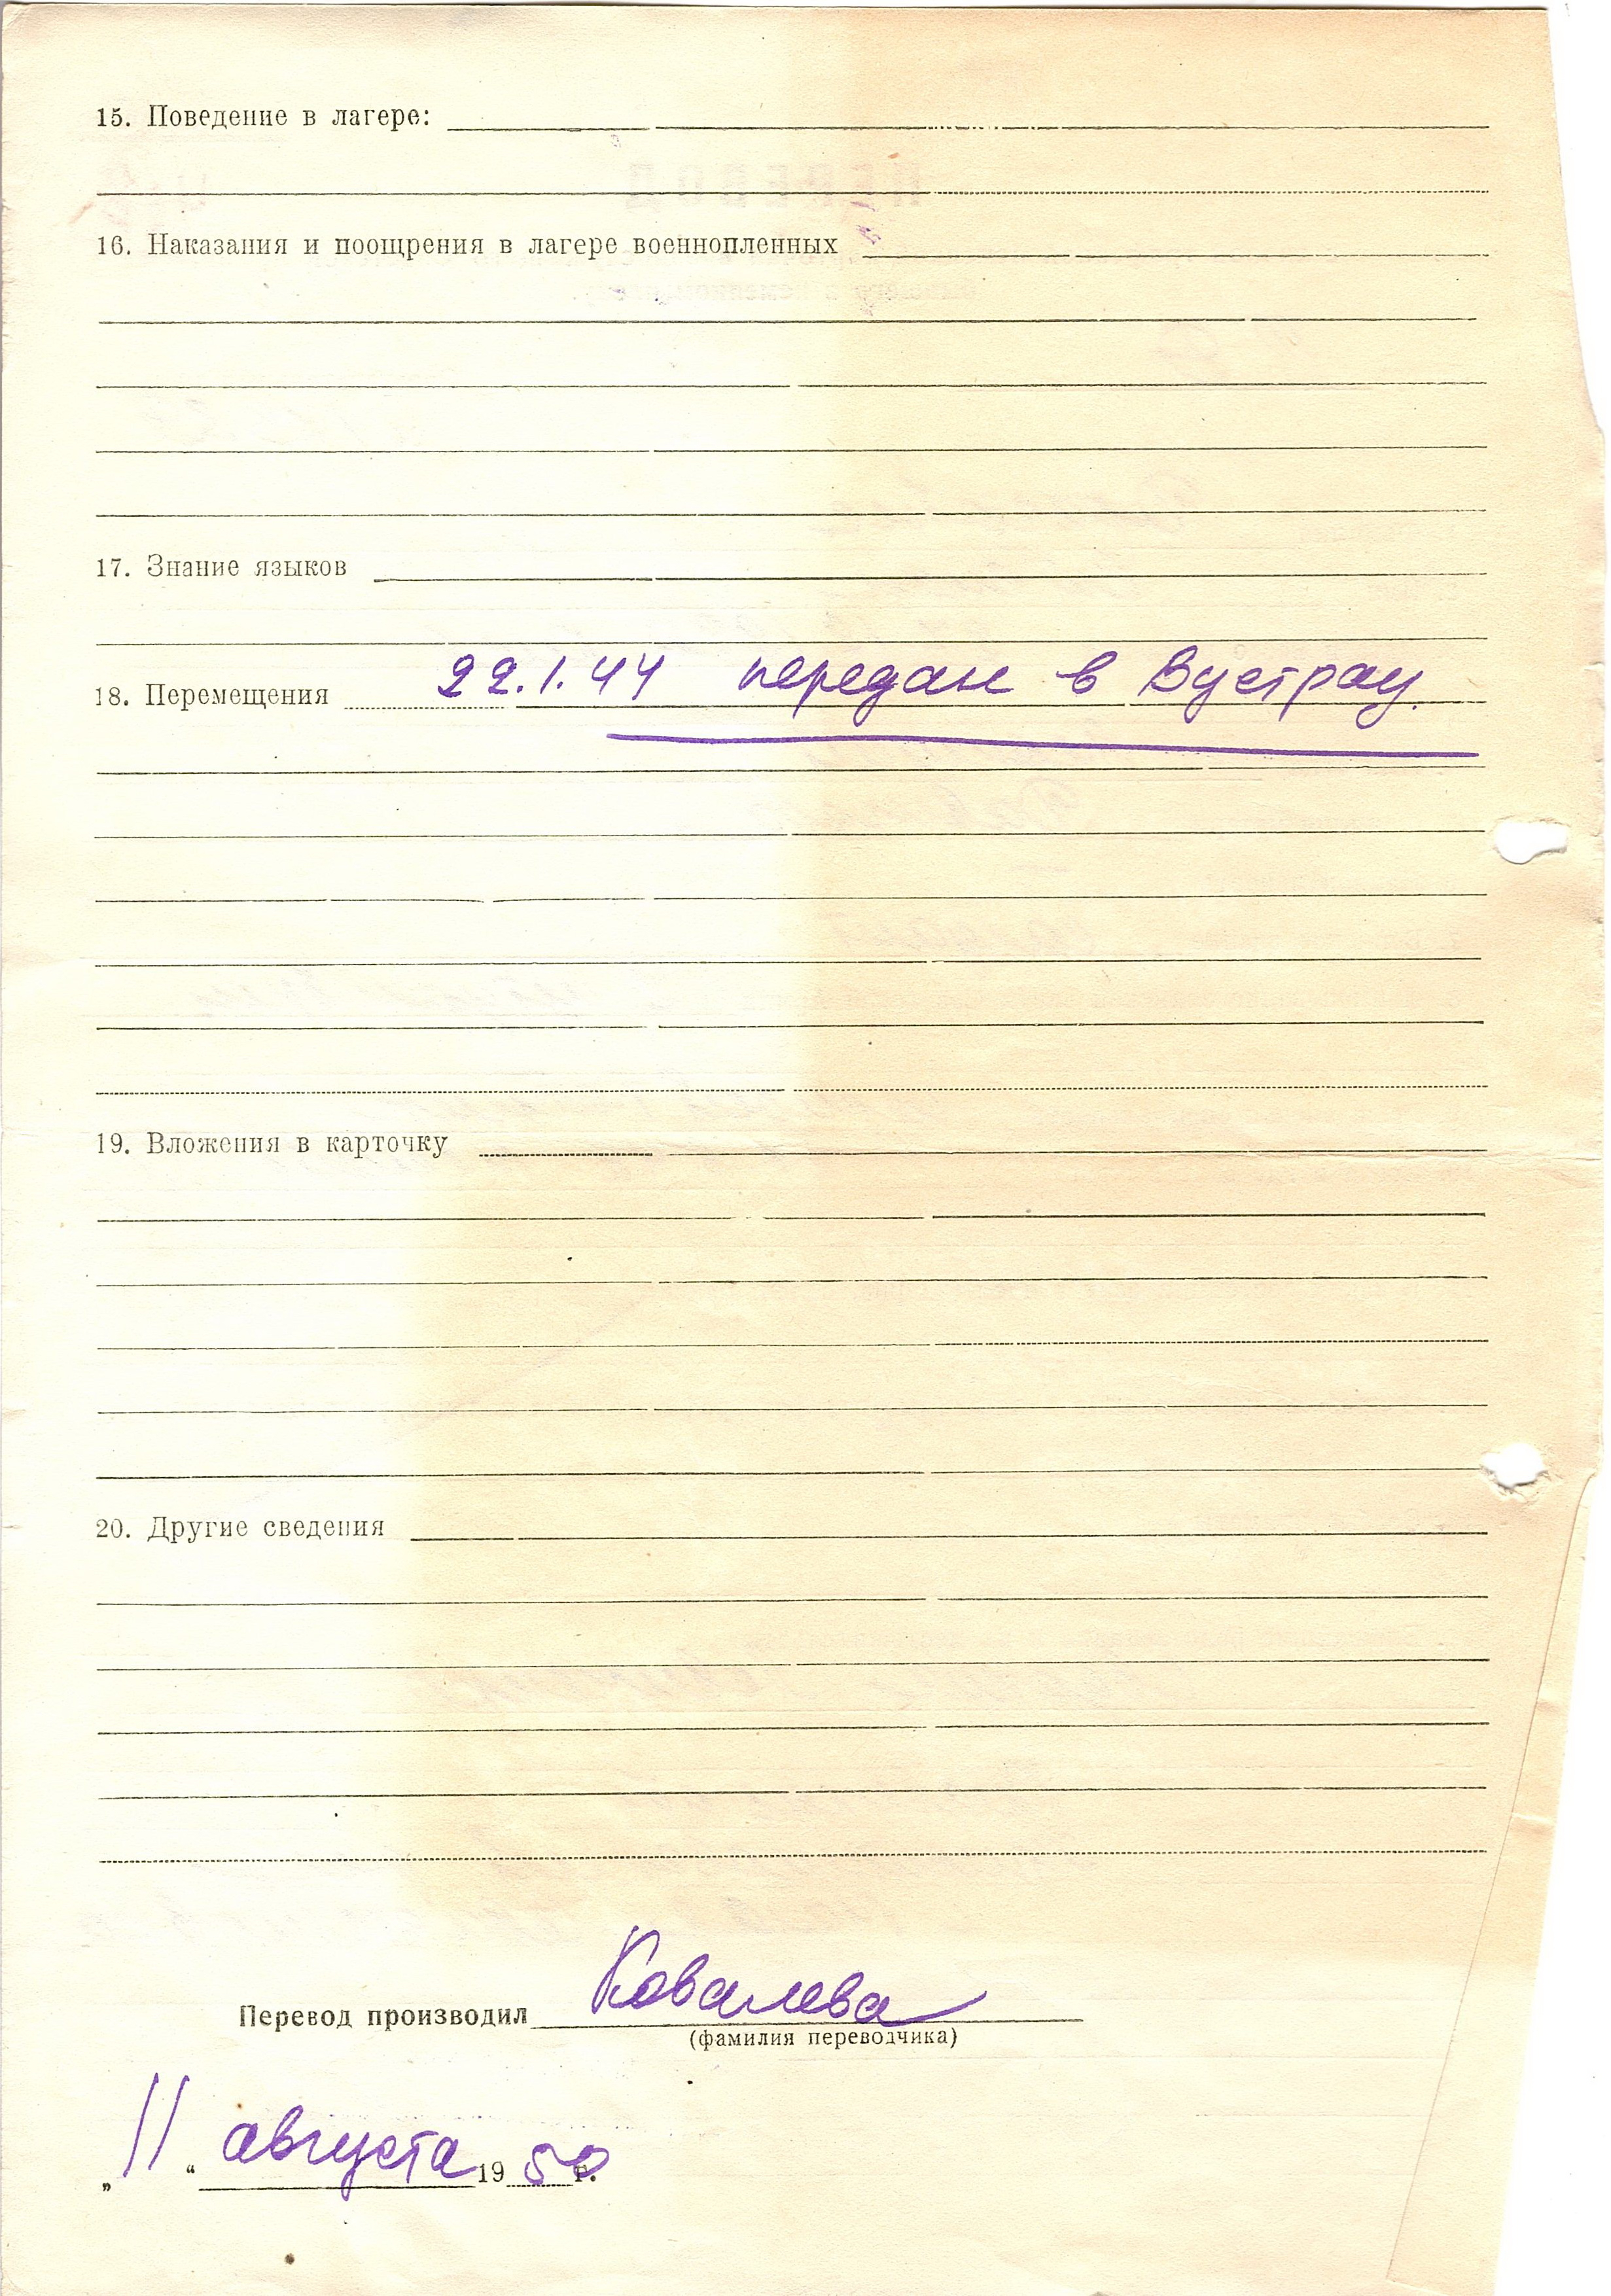 15. Поведение в лагере:
16. Наказания и поощрения в лагере военнопленных
17. Знание языков
18. Перемещения 22.1.44 передан в Вустрау.
19. Вложения в карточку
20. Другие сведения
Перевод производил Ковалева
(фамилия переводчика)
„11“ августа 1950 г.